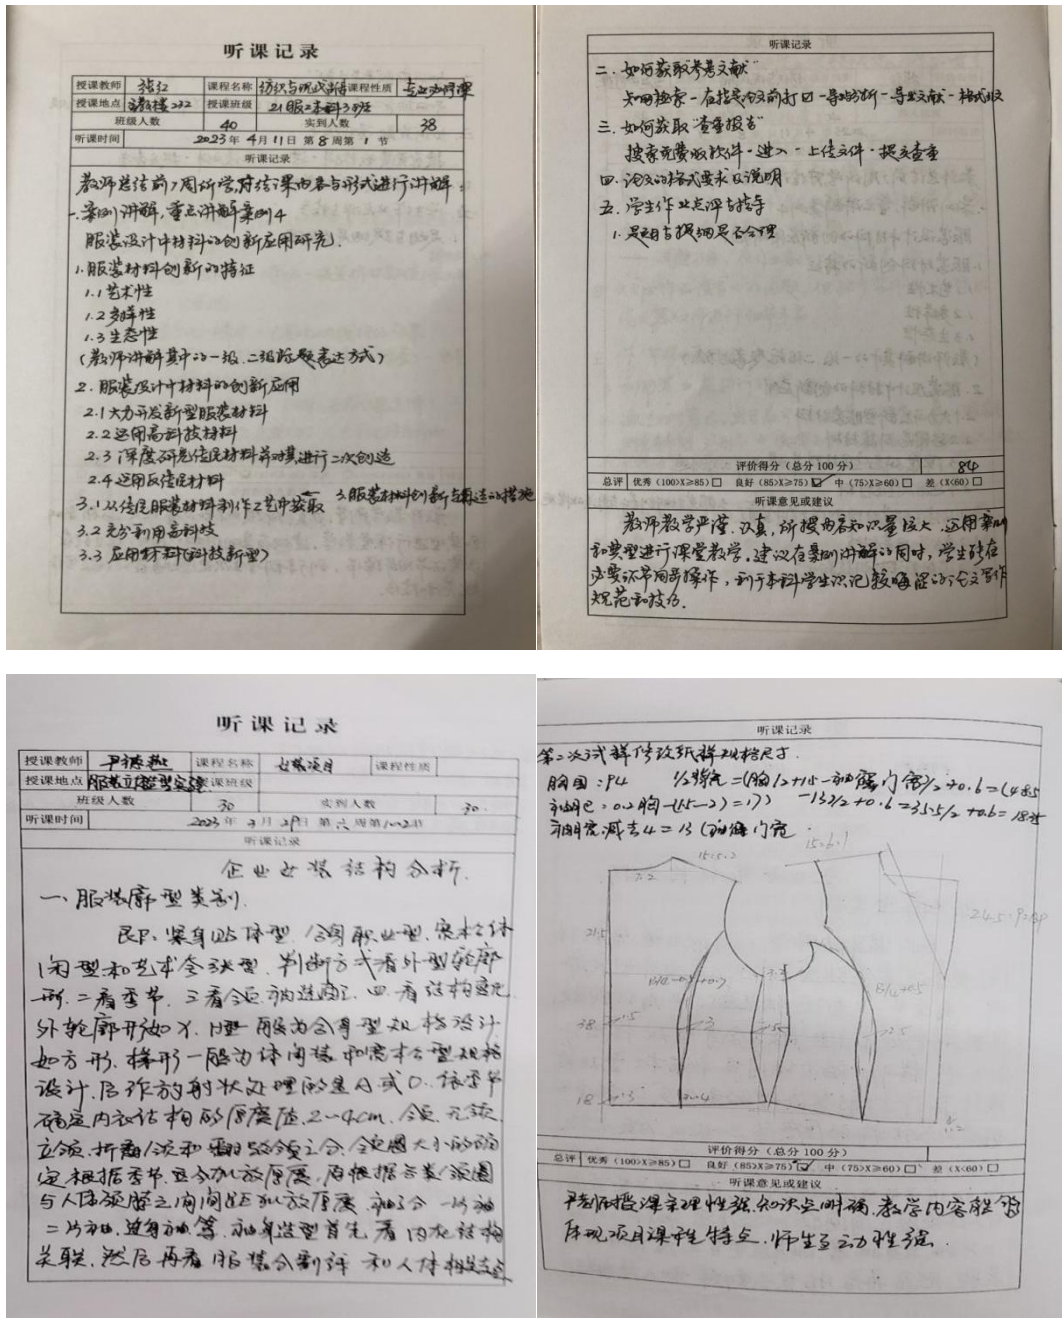 听课记录
授课教师 张红 课程名称 纺织与现代 课程性质 专业必修课
授课地点 232 授课班级 21服工本科3班
班级人数 40 实到人数 38
听课时间 2023年4月11日 第8周第1节
听课记录
教师总结前7周所学,对结课内容与形式进行讲解
一.案例讲解,重点讲解案例4
服装设计中材料的创新应用研究.
1.服装材料创新的特征
1.1艺术性
1.2多样性
1.3生态性
(教师讲解其中的一级.二级标题表达方式)
2.服装设计中材料的创新应用
2.1大力开发新型服装材料
2.2运用高科技材料
2.3深度研究传统材料并对其进行二次创造
2.4运用反传统材料
3.服装材料创新与再造的措施
3.1从传统服装材料制作工艺中获取
3.2充分利用高科技
3.3应用新材料(科技新型)
听课记录
二.如何获取"参考文献"
知网检索-在指定论文前打☑-导出分析-导出文献-格式
三.如何获取"查重报告"
搜索免费版软件-进入-上传文件-提交查重
四.论文的格式要求及说明
五.学生作业点评与指导
1.题目与提纲是否合理
评价得分(总分100分) 84
总评 优秀(100>X≥85)□ 良好(85>X≥75)☑ 中(75>X≥60)□ 差(X<60)□
听课意见或建议
教师教学严谨.认真,所授内容知识量较大.运用案例
和典型进行课堂教学。建议在案例讲解的同时,学生能在
必要环节同步操作,利于本科学生识记较晦涩的论文写作
规范和技巧.
听课记录
授课教师 尹 课程名称 女装项目 课程性质
授课地点 服装立裁 授课班级
班级人数 30 实到人数 30
听课时间 2023年3月29日 第六周第1-2节
听课记录
企业女装结构分析.
一、服装廓型类别.
即:紧身贴体型.合身职业型.宽松休
闲型和艺术夸张型.判断方式看外型轮廓
形.二看季节.三看领、袖造型.四.看结构
外轮廓形如X.H型一般为合身型规格设计
如方形.梯形一般为休闲装和宽松型规格
设计.后作放射状处理的是A或O.依季节
确定内衣结构的厚度值.2~4cm.领.无领.
立领.折翻领和 之分.领圈大小的确
定根据季节 加放厚度.后根据各类领圈
与人体颈脖之间间距加放厚度.袖子分一片袖
二片袖.连身袖等.袖身造型首先看内衣结构
关联.然后再看服装分割线和人体
听课记录
第二次试样修改纸样规格尺寸.
胸围:94
15=5.2
15=6.1
21.5
38
18
评价得分(总分100分)
总评 优秀(100>X≥85)□ 良好(85>X≥75)☑ 中(75>X≥60)□ 差(X<60)□
听课意见或建议
尹老师授课条理性强.知识点明确.教学内容能够
体现项目课程特点.师生互动性强.